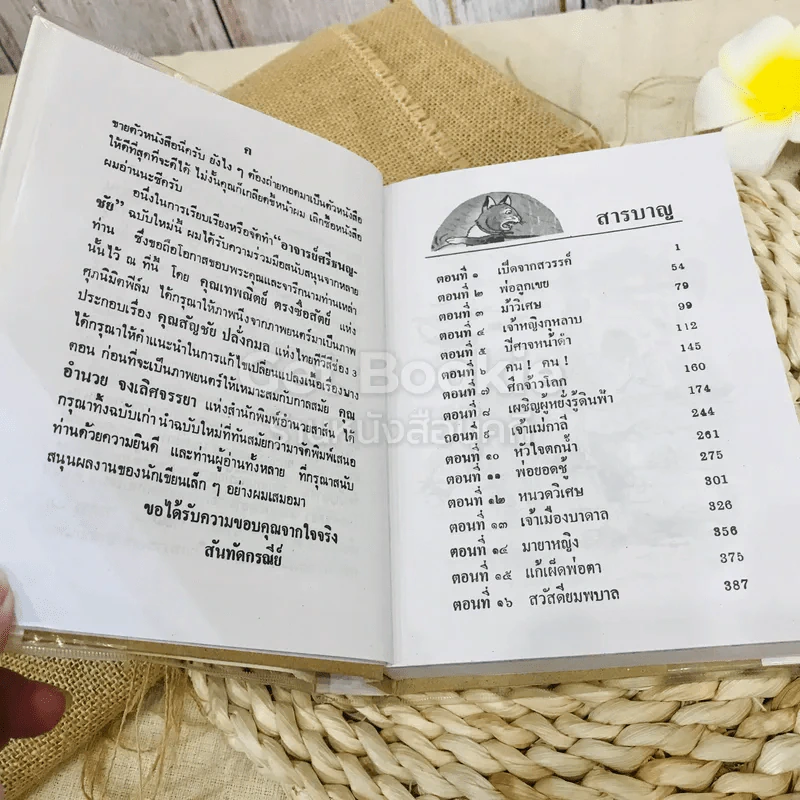 ค
ขายตัวหนังสือนี่ครับ ยังไง ๆ ต้องถ่ายทอดมาเป็นตัวหนังสือ
ให้ดีที่สุดที่จะดีได้ ไม่งั้นคุณก็เกลียดขี้หน้าผม เลิกซื้อหนังสือ
ผมอ่านนะซีครับ
อนึ่งในการเรียบเรียงหรือจัดทำ “อาจารย์ศรีธนญ-
ชัย” ฉบับใหม่นี้ ผมได้รับความร่วมมือสนับสนุนจากหลาย
ท่าน ซึ่งขอถือโอกาสขอบพระคุณและจารึกนามท่านเหล่า
นั้นไว้ ณ ที่นี้ โดย คุณเทพณิตย์ ตรงซื่อสัตย์ แห่ง
ศุภนิมิตฟิล์ม ได้กรุณาให้ภาพนิ่งจากภาพยนตร์มาเป็นภาพ
ประกอบเรื่อง คุณสัญชัย ปลั่งกมล แห่งไทยทีวีสีช่อง 3
ได้กรุณาให้คำแนะนำในการแก้ไขเปลี่ยนแปลงเนื้อเรื่องบาง
ตอน ก่อนที่จะเป็นภาพยนตร์ให้เหมาะสมกับกาลสมัย คุณ
อำนวย จงเลิศจรรยา แห่งสำนักพิมพ์อำนวยสาส์น ได้
กรุณาทิ้งฉบับเก่า นำฉบับใหม่ที่ทันสมัยกว่ามาจัดพิมพ์เสนอ
ท่านด้วยความยินดี และท่านผู้อ่านทั้งหลาย ที่กรุณาสนับ
สนุนผลงานของนักเขียนเล็ก ๆ อย่างผมเสมอมา
ขอได้รับความขอบคุณจากใจจริง
สันทัดกรณีย์
สารบาญ
ตอนที่ ๑ เป็ดจากสวรรค์ 1
ตอนที่ ๒ พ่อลูกเขย 54
ตอนที่ ๓ ม้าวิเศษ 79
ตอนที่ ๔ เจ้าหญิงกุหลาบ 99
ตอนที่ ๕ ปีศาจหน้าดำ 112
ตอนที่ ๖ คน ! คน ! 145
ตอนที่ ๗ ศึกจ้าวโลก 160
ตอนที่ ๘ เผชิญผู้หยั่งรู้ดินฟ้า 174
ตอนที่ ๙ เจ้าแม่กาลี 244
ตอนที่ ๑๐ หัวใจตกน้ำ 261
ตอนที่ ๑๑ พ่อยอดชู้ 275
ตอนที่ ๑๒ หนวดวิเศษ 301
ตอนที่ ๑๓ เจ้าเมืองบาดาล 326
ตอนที่ ๑๔ มายาหญิง 356
ตอนที่ ๑๕ แก้เผ็ดพ่อตา 375
ตอนที่ ๑๖ สวัสดียมพบาล 387